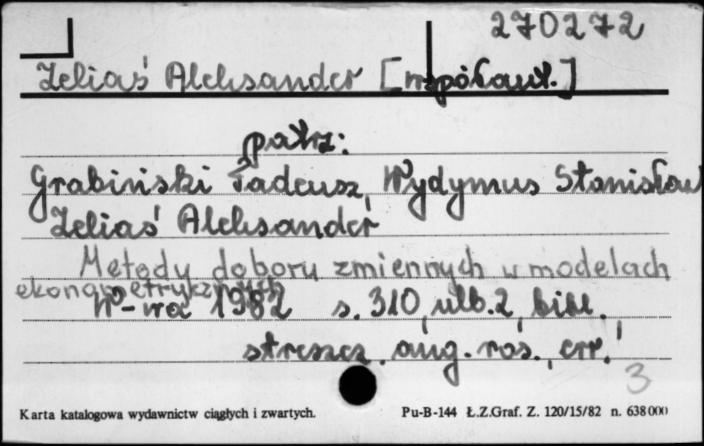 270272
Zeliaś Aleksander [współaut.]
patrz:
Grabiński Tadeusz, Wydymus Stanisław
Zeliaś Aleksander
Metody doboru zmiennych w modelach
ekonometrycznych
W-wa 1982 s. 310, nlb. 2, bibl.,
streszcz. ang. ros., err.
3
Karta katalogowa wydawnictw ciągłych i zwartych. Pu-B-144 Ł.Z.Graf. Z. 120/15/82 n. 638 000